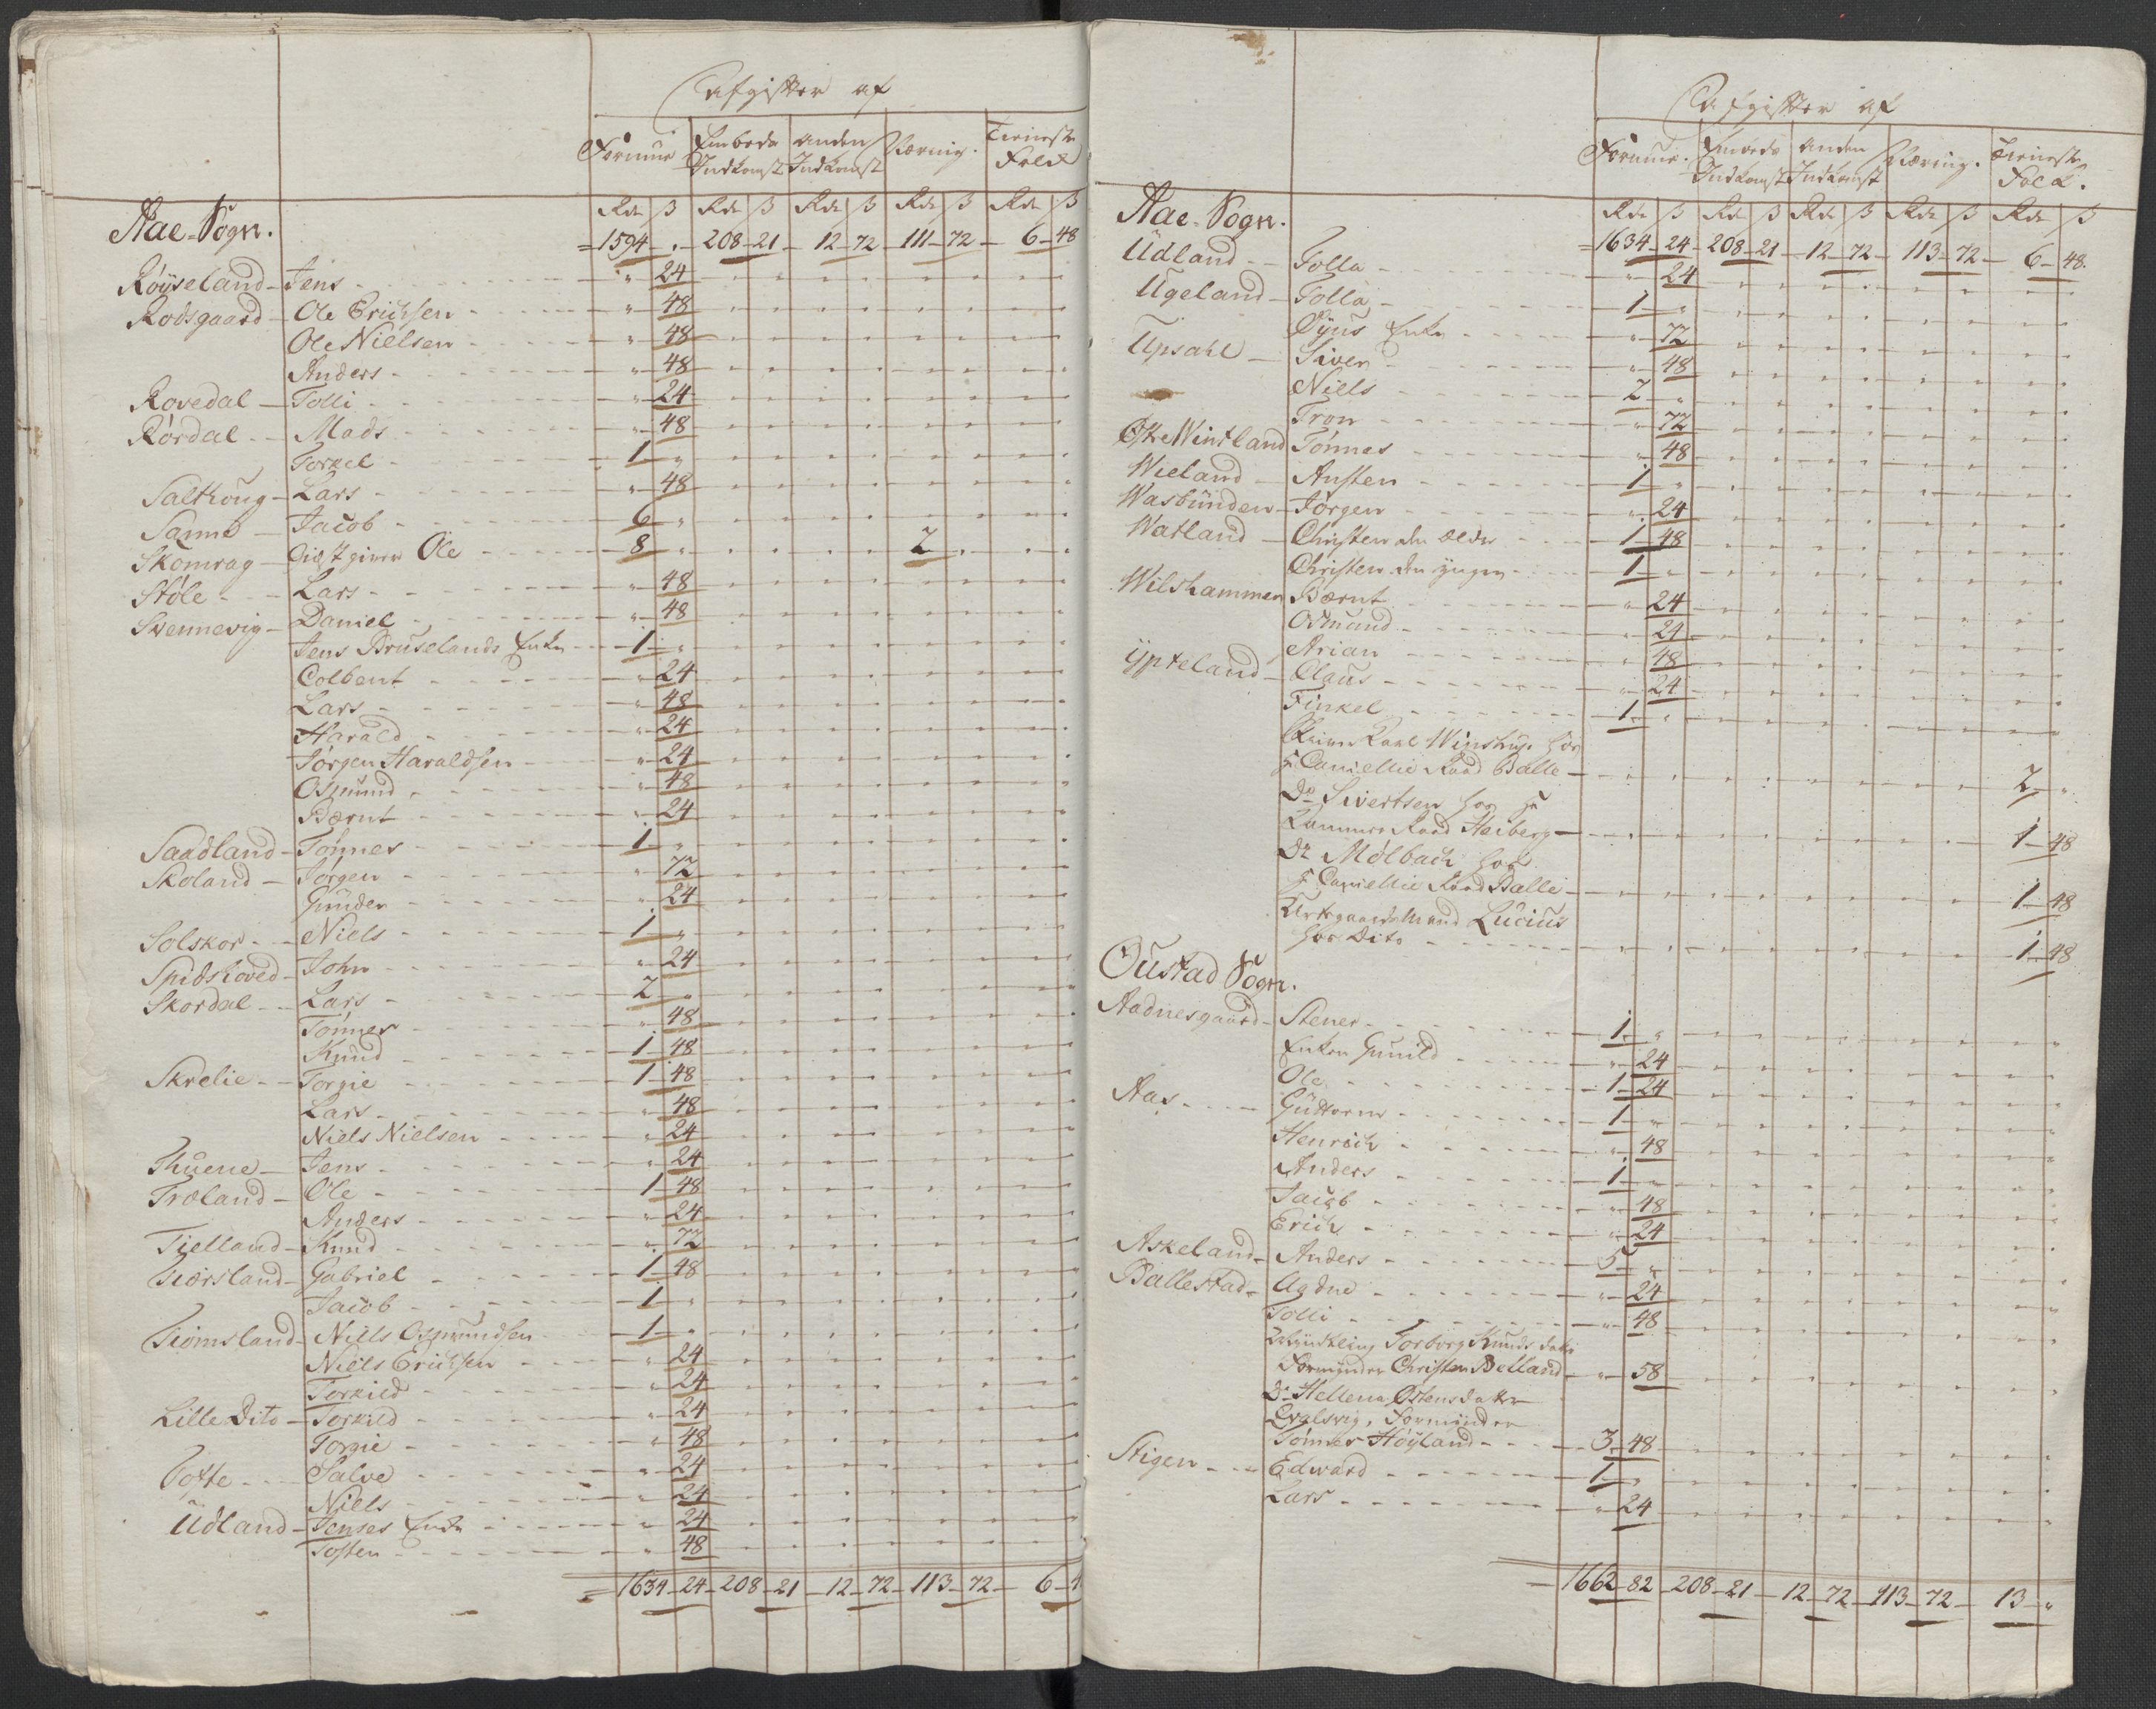 Afgifter af
Formue Embeds Indkomst Anden Indkomst Næring. Tieneste Folk
Rdr ß Rdr ß Rdr ß Rdr ß Rdr ß
Aae-Sogn. = 1594 - . - 208 - 21 - 12 - 72 - 111 - 72 - 6 - 48
Röÿseland - Jens - " 24
Rodsgaard - Ole Erichsen - " 48
Ole Nielsen - " 48
Anders - " 48
Rovedal - Tolli - " 24
Rördal - Mads - " 48
Torkel - 1 "
Salthoug - Lars - " 48
Sanne - Jacob - 6 "
Skomrag - Giæstgiver Ole - 8 " 2
Støle - Lars - " 48
Svennevig - Daniel - " 48
Jens Bruselands Enke - 1 "
Colbent - " 24
Lars - " 48
Harald - " 24
Jörgen Haraldsen - " 24
Osmund - " 48
Bærnt - " 24
Saadland - Tönnes - 1 "
Skoland - Jörgen - " 72
Gunder - " 24
Solskor - Niels - 1 "
Spidshoved - John - " 24
Skordal - Lars - 2 "
Tönnes - " 48
Knud - 1 - 48
Skrelie - Torgie - 1 - 48
Lars - " 48
Niels Nielsen - " 24
Thuene - Jens - " 24
Træland - Ole - 1 - 48
Anders - " 24
Tielland - Knud - " 72
Tiörsland - Gabriel - 1 - 48
Jacob - 1 "
Tiomsland - Niels Osmundsen - 1 "
Niels Erichsen - " 24
Torkild - " 24
Lille Dito - Torkild - " 24
Torgie - " 48
Tofte - Salve - " 24
Niels - " 24
Udland - Jenses Enke - " 24
Tosten - " 48
= 1634 - 24 - 208 - 21 - 12 - 72 - 113 - 72 - 6 - 4
Afgifter af
Formue. Embeds Indkomst Anden Indkomst Næring. Tieneste Folk.
Rdr ß Rdr ß Rdr ß Rdr ß Rdr ß
Aae-Sogn. = 1634 - 24 - 208 - 21 - 12 - 72 - 113 - 72 - 6 - 48.
Udland - Tolla - " 24
Ugeland - Tolla - 1 "
Öÿus Enke - " 72
Upsahl - Siver - " 48
Niels - 2 "
Tron - " 72
Østre Wintland Tönnes - " 48
Wieland - Austen - 1 "
Wasbunden - Jörgen - " 24
Watland - Christen den ældre - 1 - 48
Christen den ÿngre - 1 "
Wilshammen Bærnt - " 24
Osmund - " 24
Arian - " 48
Ÿpteland - Claus - " 24
Finkel - 1 "
Skriver Karl Winstrup hos
Hr Cancellie Raad Balle - 2 "
Do Sivertsen hos Hr
Kammer Raad Heiberg - 1 - 48
Do Mölbach hos
Hr Cancellie Raad Balle - 1 - 48
Urtegaardsmand Lucius
hos Dito - 1 - 48
Oustad Sogn.
Aadnesgaard - Stener - 1 "
Enken Gunild - " 24
Ole - 1 - 24
Aas - Guttorm - 1 "
Henrich - " 48
Anders - 1 "
Jacob - " 48
Erich - " 24
Askeland - Anders - 5 "
Ballestad - Aadne - " 24
Tolli - " 48
Mÿndtling Torborg Knuds datr
Formÿnder Christen Belland - " 58
Do Hellena Östensdatter
Qvalsvig, Formÿnder
Tönnes Höÿland - 3 - 48
Stigen - Edward - 1 "
Lars - " 24
= 1662 - 82 - 208 - 21 - 12 - 72 - 113 - 72 - 13 - "